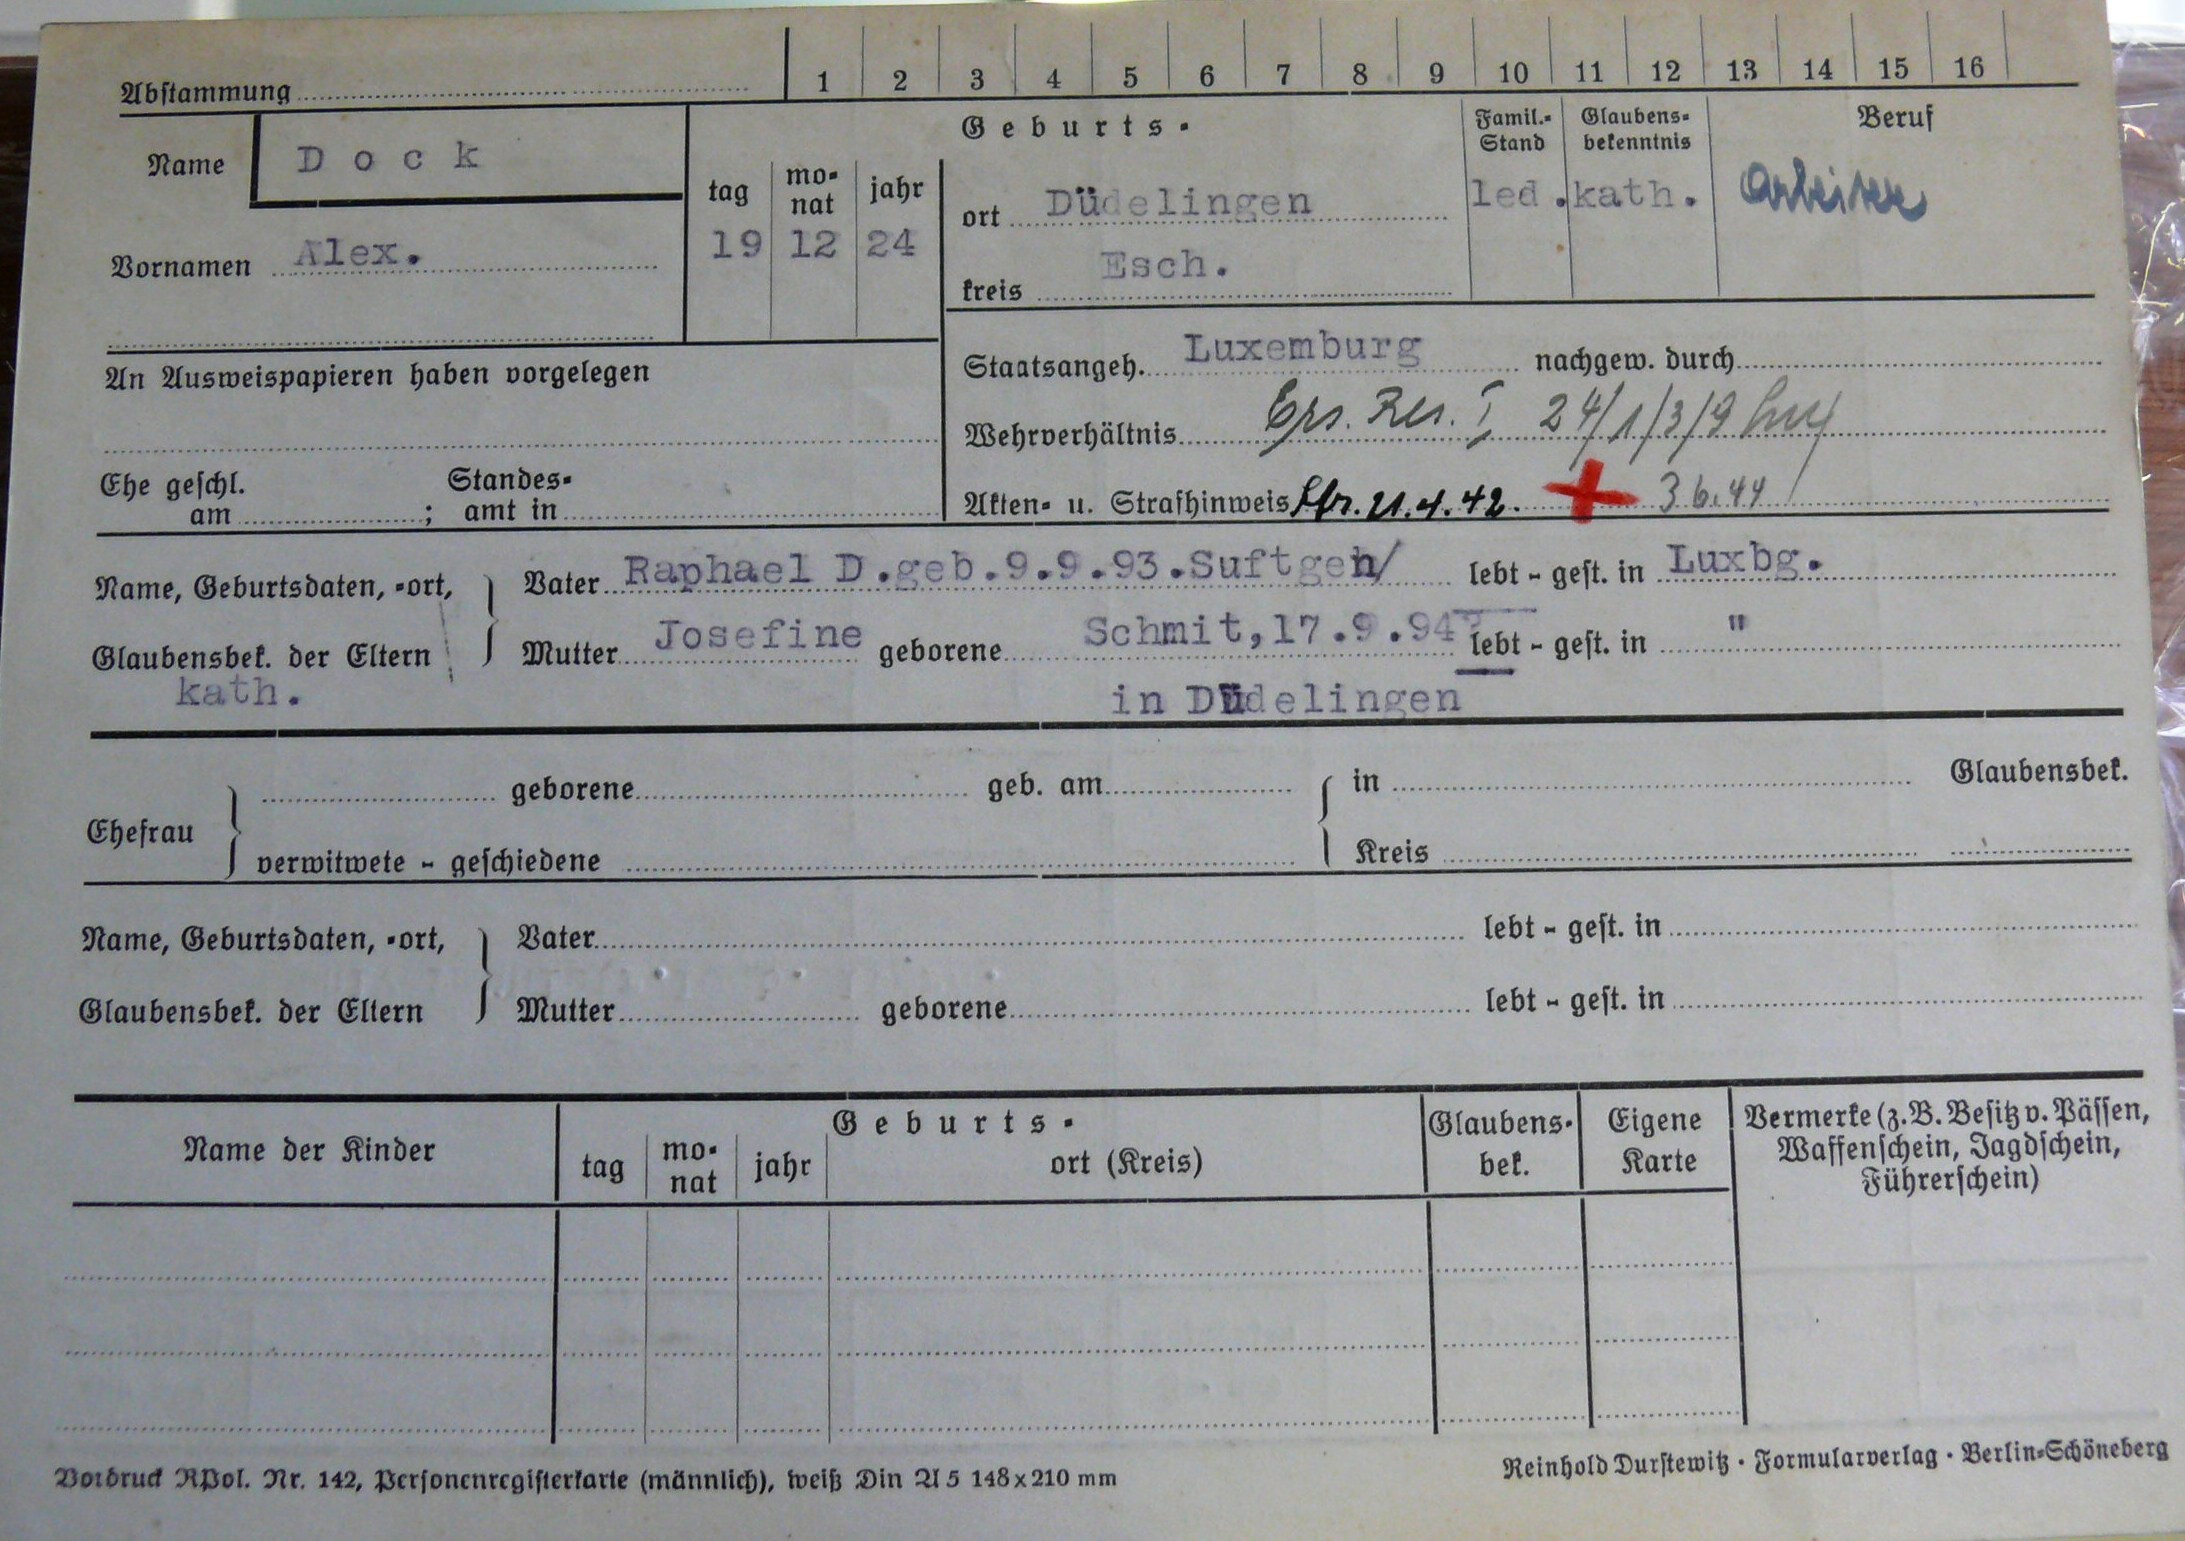 Abstammung 1 2 3 4 5 6 7 8 9 10 11 12 13 14 15 16
Name Dock
Vornamen Alex.
Geburts-
tag monat jahr
19 12 24
ort Düdelingen
kreis Esch.
Famil.-Stand
led.
Glaubens-bekenntnis
kath.
Beruf
Arbeiter
An Ausweispapieren haben vorgelegen
Staatsangeh. Luxemburg nachgew. durch
Wehrverhältnis Ers. Res. I 24/1/3/9
Ehe geschl. am ; Standes-amt in
Akten- u. Strafhinweis 21.4.42. + 3.6.44
Name, Geburtsdaten, -ort, Vater Raphael D.geb.9.9.93.Suftgen/ lebt - gest. in Luxbg.
Glaubensbek. der Eltern Mutter Josefine geborene Schmit,17.9.94? lebt - gest. in "
kath. in Düdelingen
geborene geb. am in Glaubensbek.
Ehefrau
verwitwete - geschiedene Kreis
Name, Geburtsdaten, -ort, Vater lebt - gest. in
Glaubensbek. der Eltern Mutter geborene lebt - gest. in
Name der Kinder
Geburts-
tag monat jahr ort (Kreis)
Glaubens-bek.
Eigene Karte
Vermerke (z.B. Besitz v. Pässen,
Waffenschein, Jagdschein,
Führerschein)
Vordruck RPol. Nr. 142, Personenregisterkarte (männlich), weiß Din A 5 148x210 mm
Reinhold Durstewitz · Formularverlag · Berlin-Schöneberg